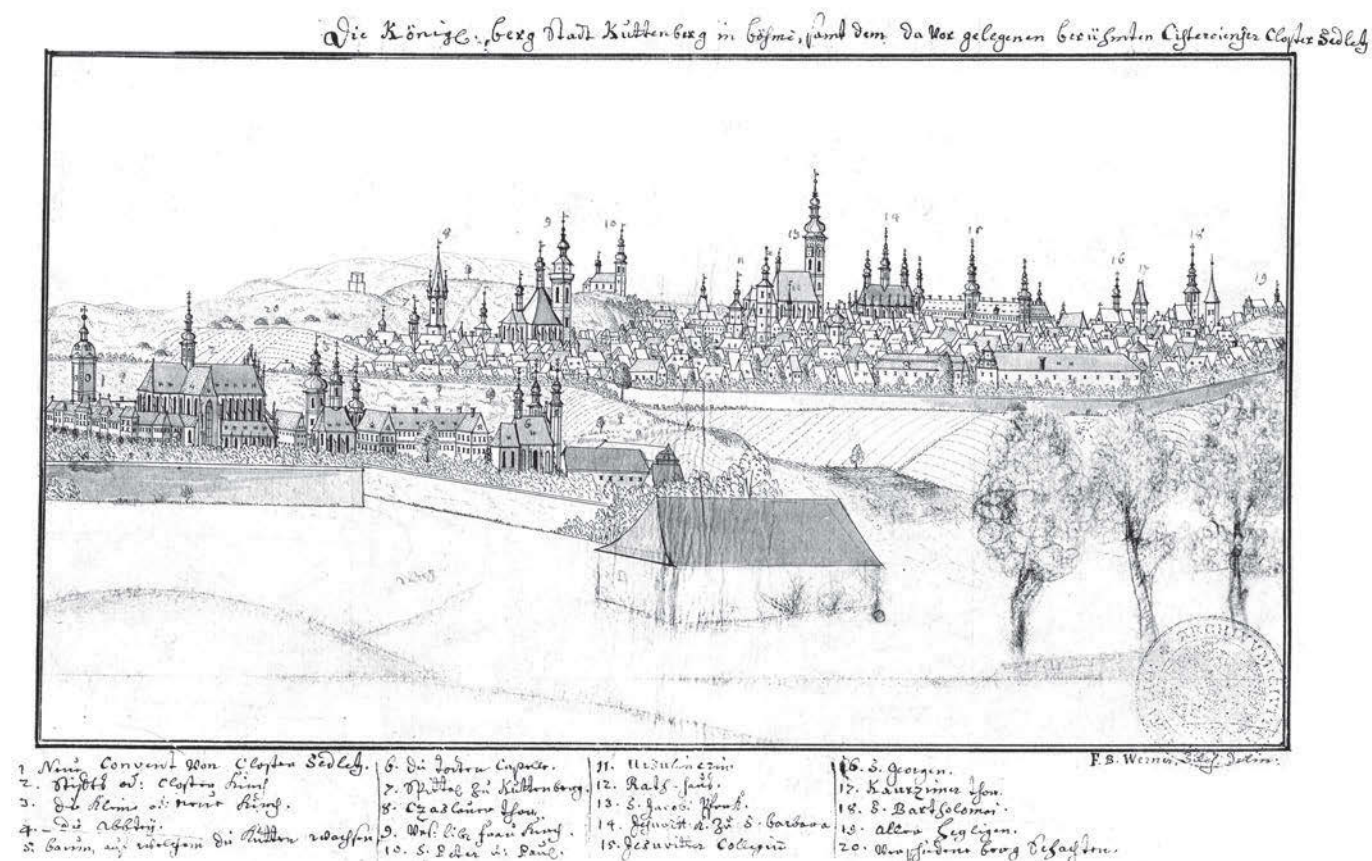 Die Königl: berg Stadt Kuttenberg in böhme, samt dem da vor gelegenen berühmten Cistercienser Closter Sedletz
8
9
10
11
13
14
15
16
17
18
19
20
6
1 Neue Convent von Closter Sedletz.
2. Stiffts od: Closter Kirch
3. die Kleine od: neue Kirch.
4. die Abbtey.
5. baum, auf welchem die Kutten wachsen
6. die Todten Capelle.
7. Spittel zu Kuttenberg.
8. Czaslauer Thor,
9. Uns. libe frau Kirch.
10. S. Peter u: Paul.
11. Ursulinerin
12. Rath haus.
13. S. Jacob.
14. Jesuitt. K. zu S. barbara
15. Jesuitter Collegiū
16. S. Georgen.
17. Kaurzimer Thor.
18. S. Bartholomei.
19. Aller Heyligen.
20. Verschidene berg Schachten.
F. B. Werner, Siles. delin: